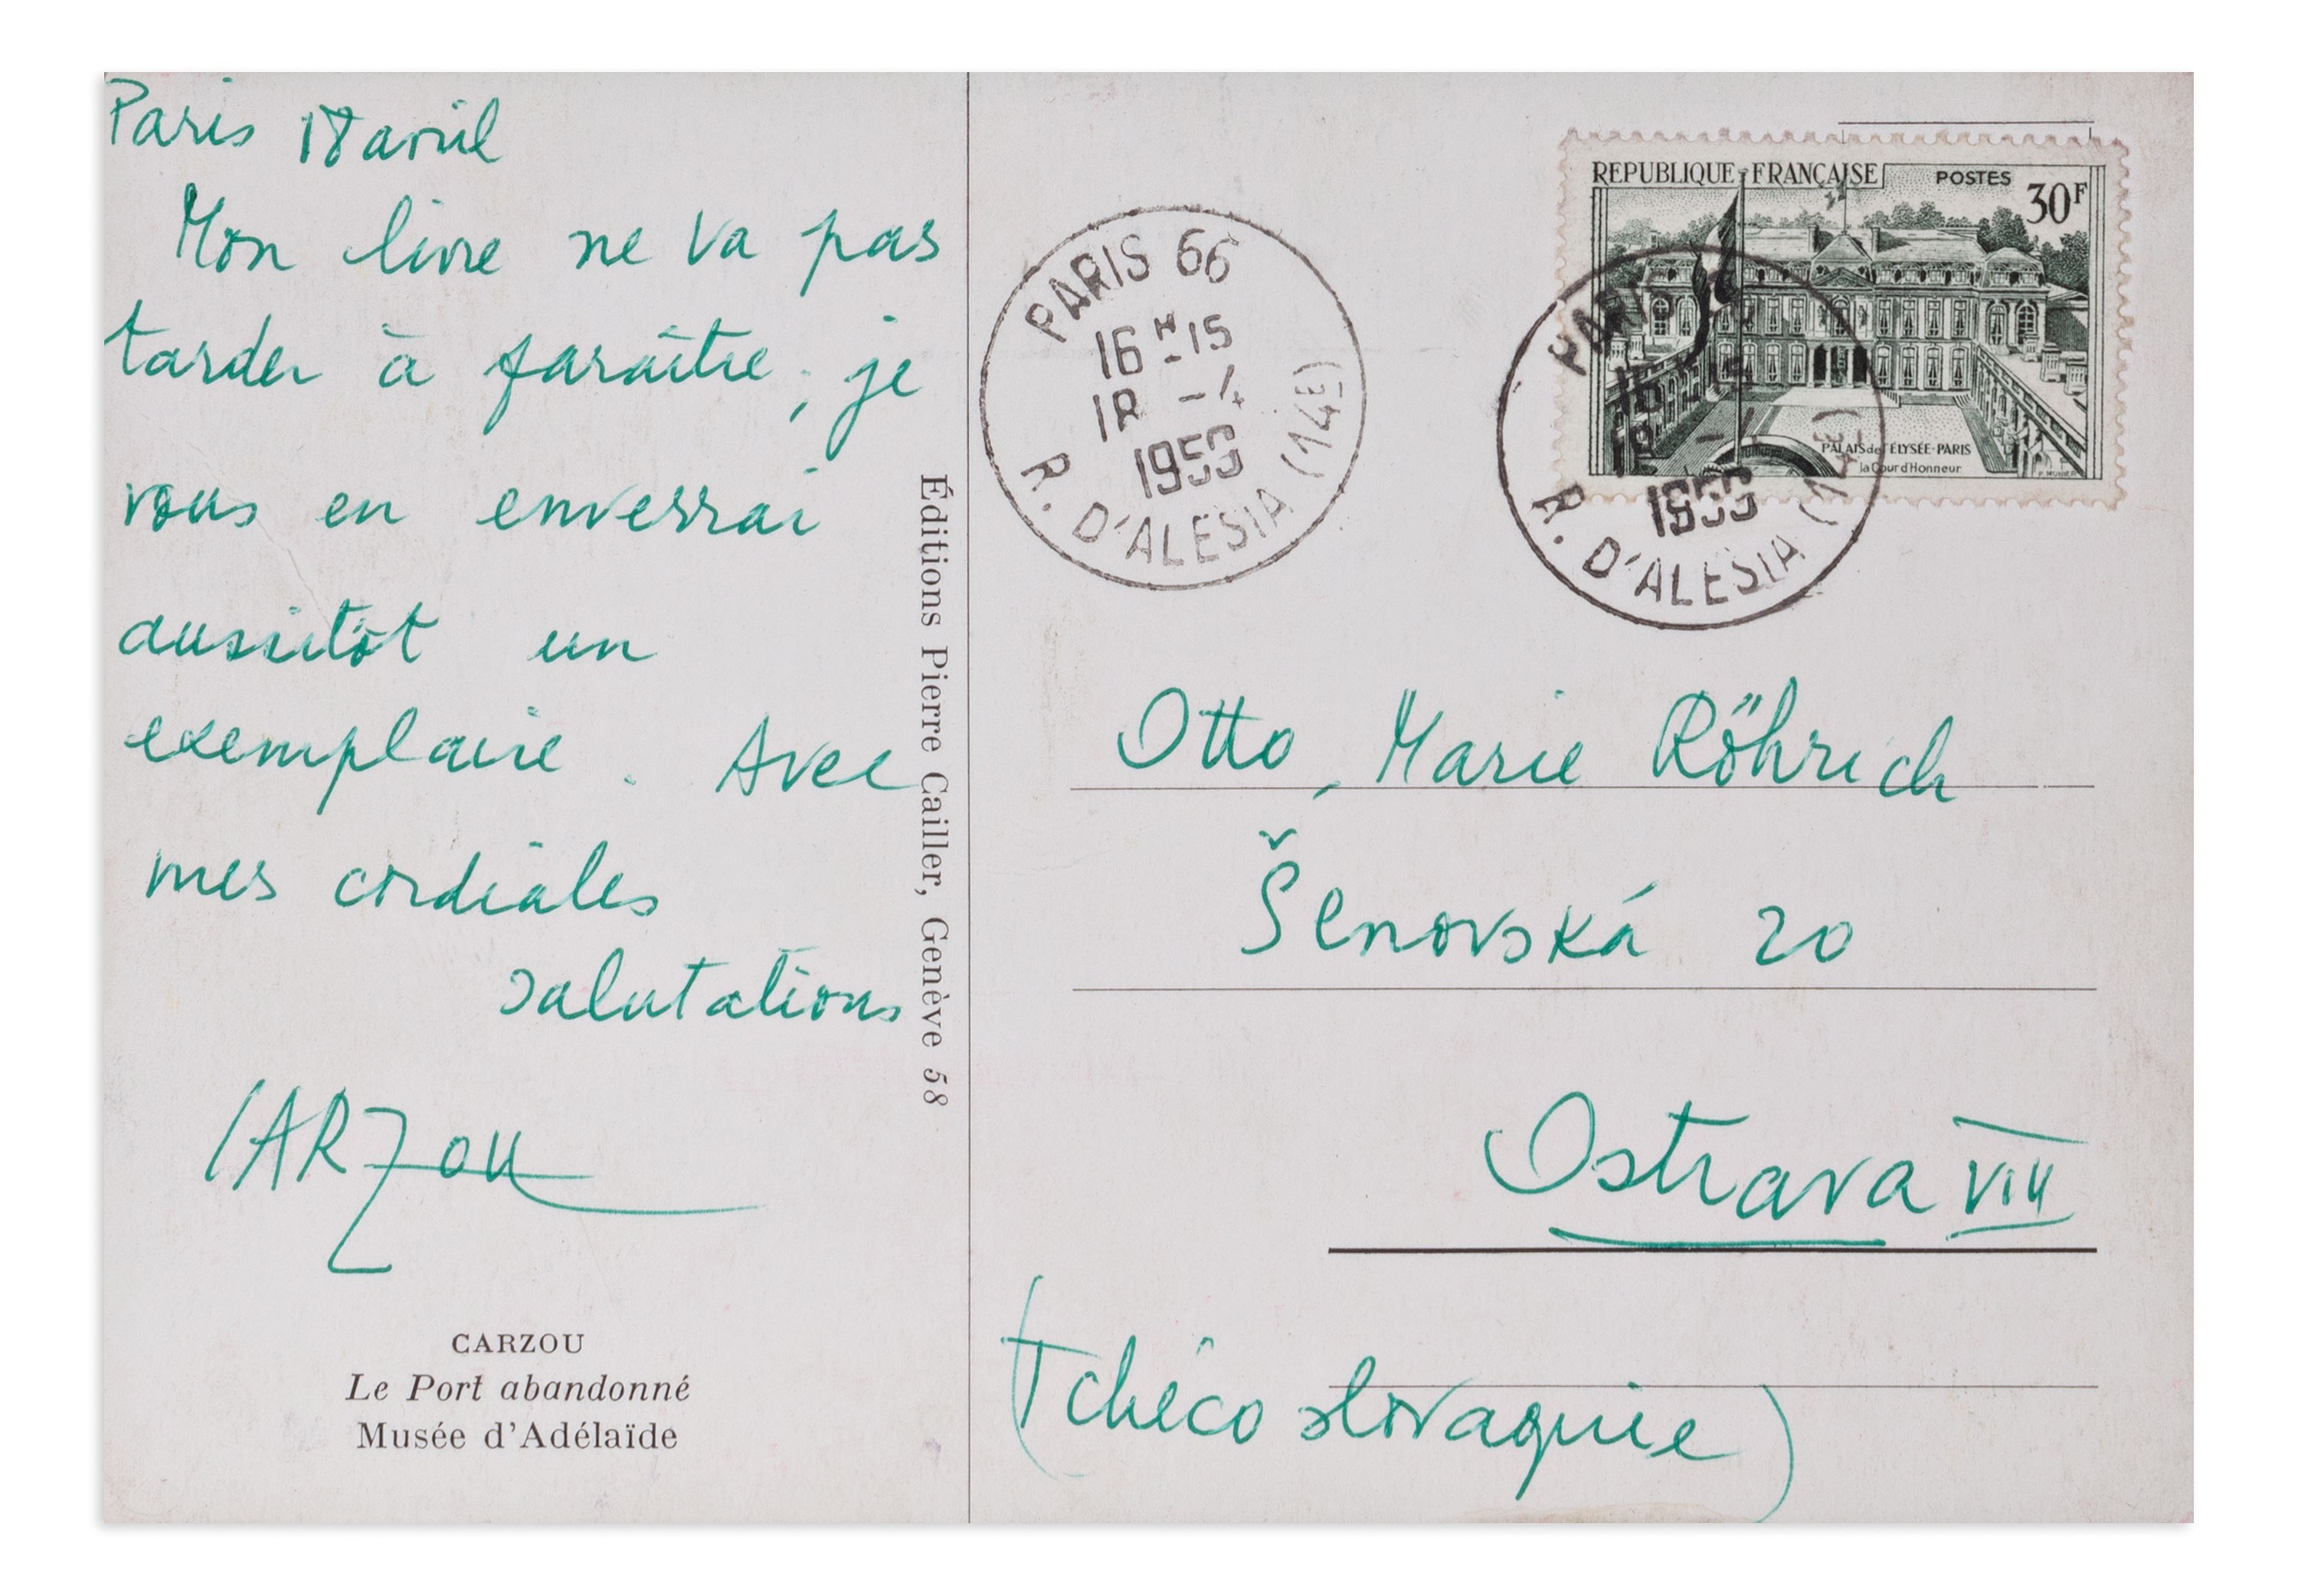 Paris 18 avril
Mon livre ne va pas
tarder à paraître, je
vous en enverrai
aussitôt un
exemplaire. Avec
mes cordiales
salutations
CARZOU
CARZOU
Le Port abandonné
Musée d'Adélaïde
Éditions Pierre Cailler, Genève 58
PARIS 66
16 H 15
18 -4
1959
R. D'ALESIA (14E)
REPUBLIQUE FRANÇAISE POSTES
30F
PALAIS de l'ÉLYSÉE-PARIS
la Cour d'Honneur
PARIS
16 H 15
18 -
1959
R. D'ALESIA (14E)
Otto, Marie Röhrich
Šenovská 20
Ostrava VIII
(Tchécoslovaquie)